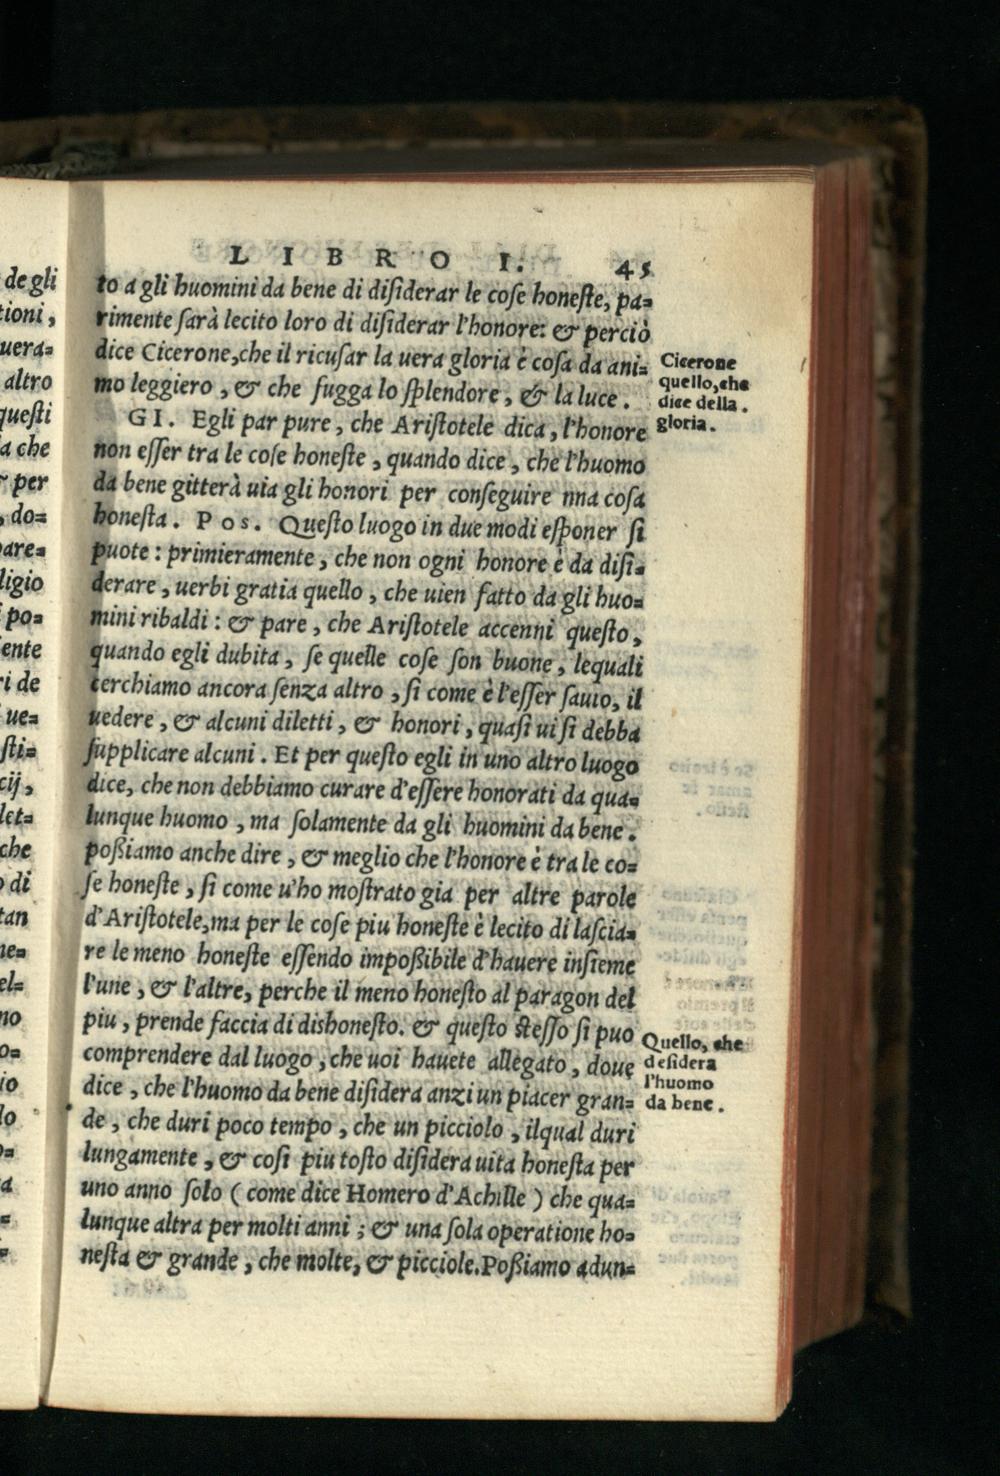 LIBRO I. 45
to a gli huomini da bene di disiderar le cose honeste, pa=
rimente sarà lecito loro di disiderar l'honore: & perciò
dice Cicerone, che il ricusar la uera gloria è cosa da ani=
mo leggiero, & che fugga lo splendore, & la luce.
GI. Egli par pure, che Aristotele dica, l'honore
non esser tra le cose honeste, quando dice, che l'huomo
da bene gitterà uia gli honori per conseguire nna cosa
honesta. Pos. Questo luogo in due modi esponer si
puote: primieramente, che non ogni honore è da disi=
derare, uerbi gratia quello, che uien fatto da gli huo=
mini ribaldi: & pare, che Aristotele accenni questo,
quando egli dubita, se quelle cose son buone, lequali
cerchiamo ancora senza altro, si come è l'esser sauio, il
uedere, & alcuni diletti, & honori, quasi ui si debba
supplicare alcuni. Et per questo egli in uno altro luogo
dice, che non debbiamo curare d'essere honorati da qua=
lunque huomo, ma solamente da gli huomini da bene.
poßiamo anche dire, & meglio che l'honore è tra le co=
se honeste, si come u'ho mostrato gia per altre parole
d'Aristotele, ma per le cose piu honeste è lecito di lascia=
re le meno honeste essendo impoßibile d'hauere insieme
l'une, & l'altre, perche il meno honesto al paragon del
piu, prende faccia di dishonesto. & questo stesso si puo
comprendere dal luogo, che uoi hauete allegato, doue
dice, che l'huomo da bene disidera anzi un piacer gran=
de, che duri poco tempo, che un picciolo, ilqual duri
lungamente, & cosi piu tosto disidera uita honesta per
uno anno solo (come dice Homero d'Achille) che qua=
lunque altra per molti anni; & una sola operatione ho=
nesta & grande, che molte, & picciole. Poßiamo adun=
Cicerone
quello, che
dice della
gloria.
Quello, che
desidera
l'huomo
da bene.
de gli
tioni,
uera=
altro
questi
a che
per
, do=
pare=
ligio
po=
ente
ri de
ue=
sti=
cij,
let=
che
di
tan
ne=
el=
no
o=
io
lo